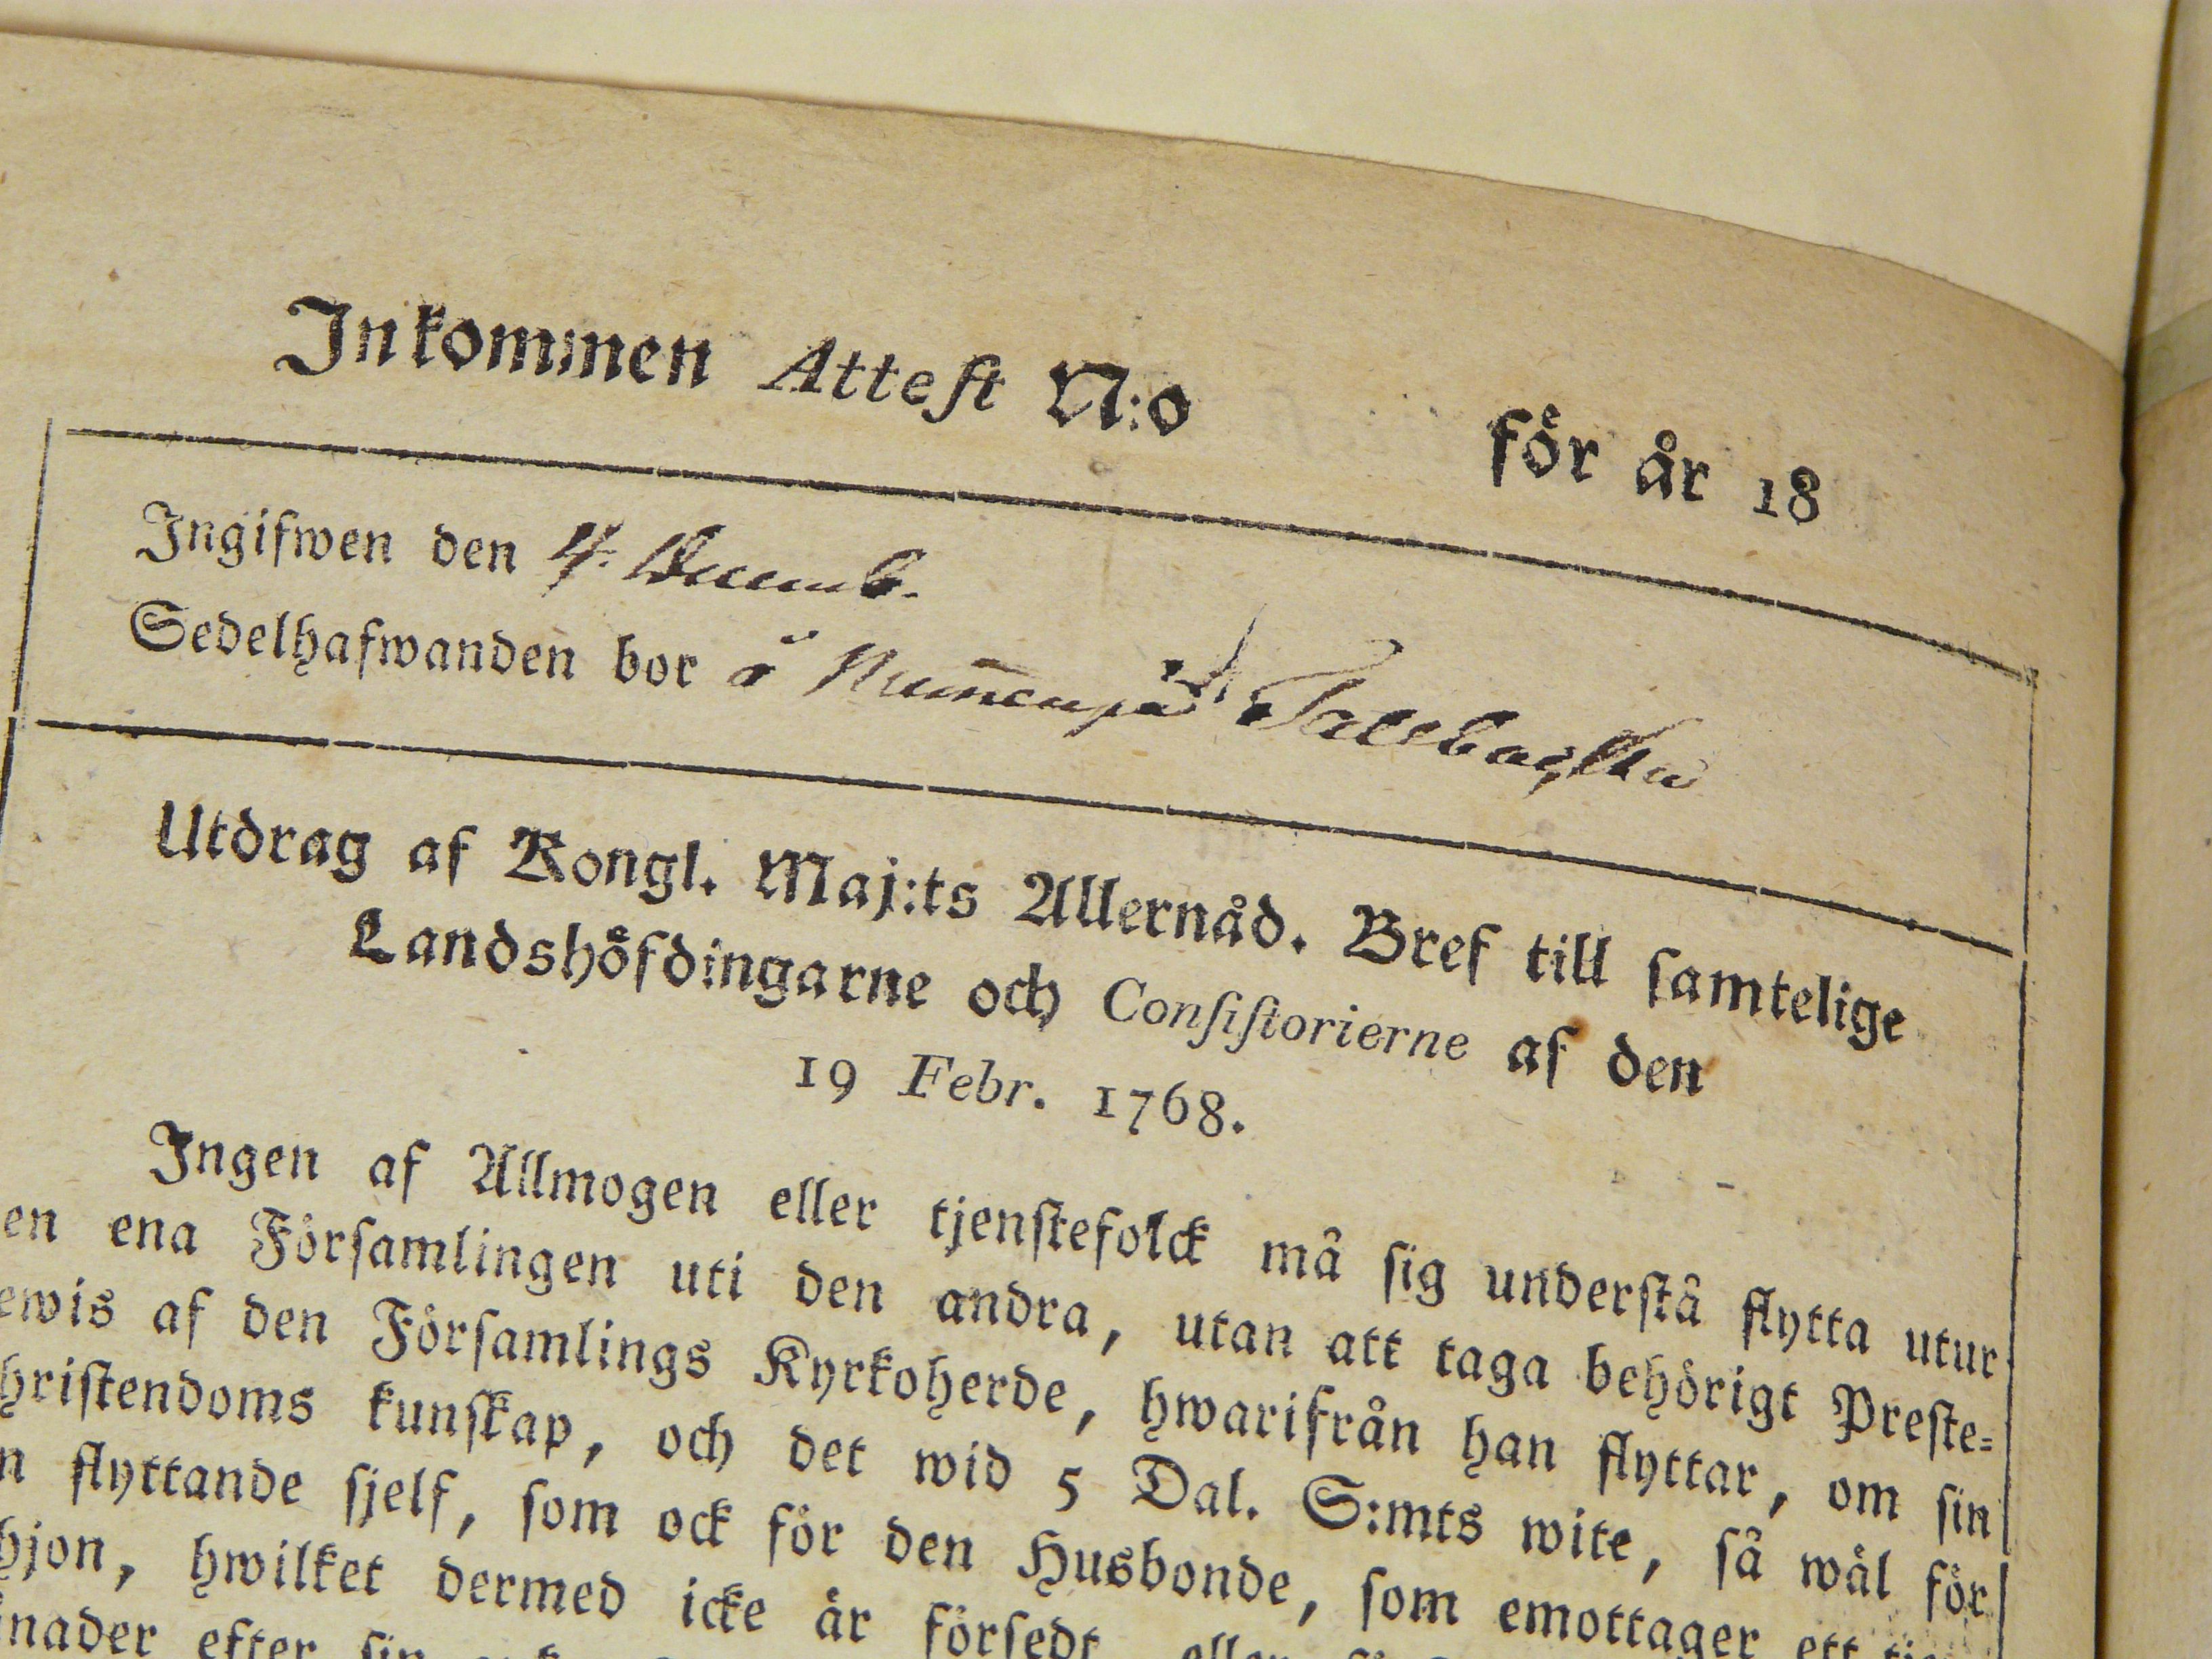 Inkommen Attest N:o för år 18
Ingifwen den 4. Decemb.
Sedelhafwanden bor å
Utdrag af Kongl. Maj:ts Allernåd. Bref till samtelige
Landshöfdingarne och Consistorierne af den
19 Febr. 1768.
Ingen af Allmogen eller tjenstefolck må sig understå flytta utur
en ena Församlingen uti den andra, utan att taga behörigt Preste=
ewis af den Församlings Kyrkoherde, hwarifrån han flyttar, om sin
hristendoms kunskap, och det wid 5 Dal. S:mts wite, så wäl för
n flyttande sjelf, som ock för den Husbonde, som emottager ett
hjon, hwilket dermed icke är försedt
nader efter sin